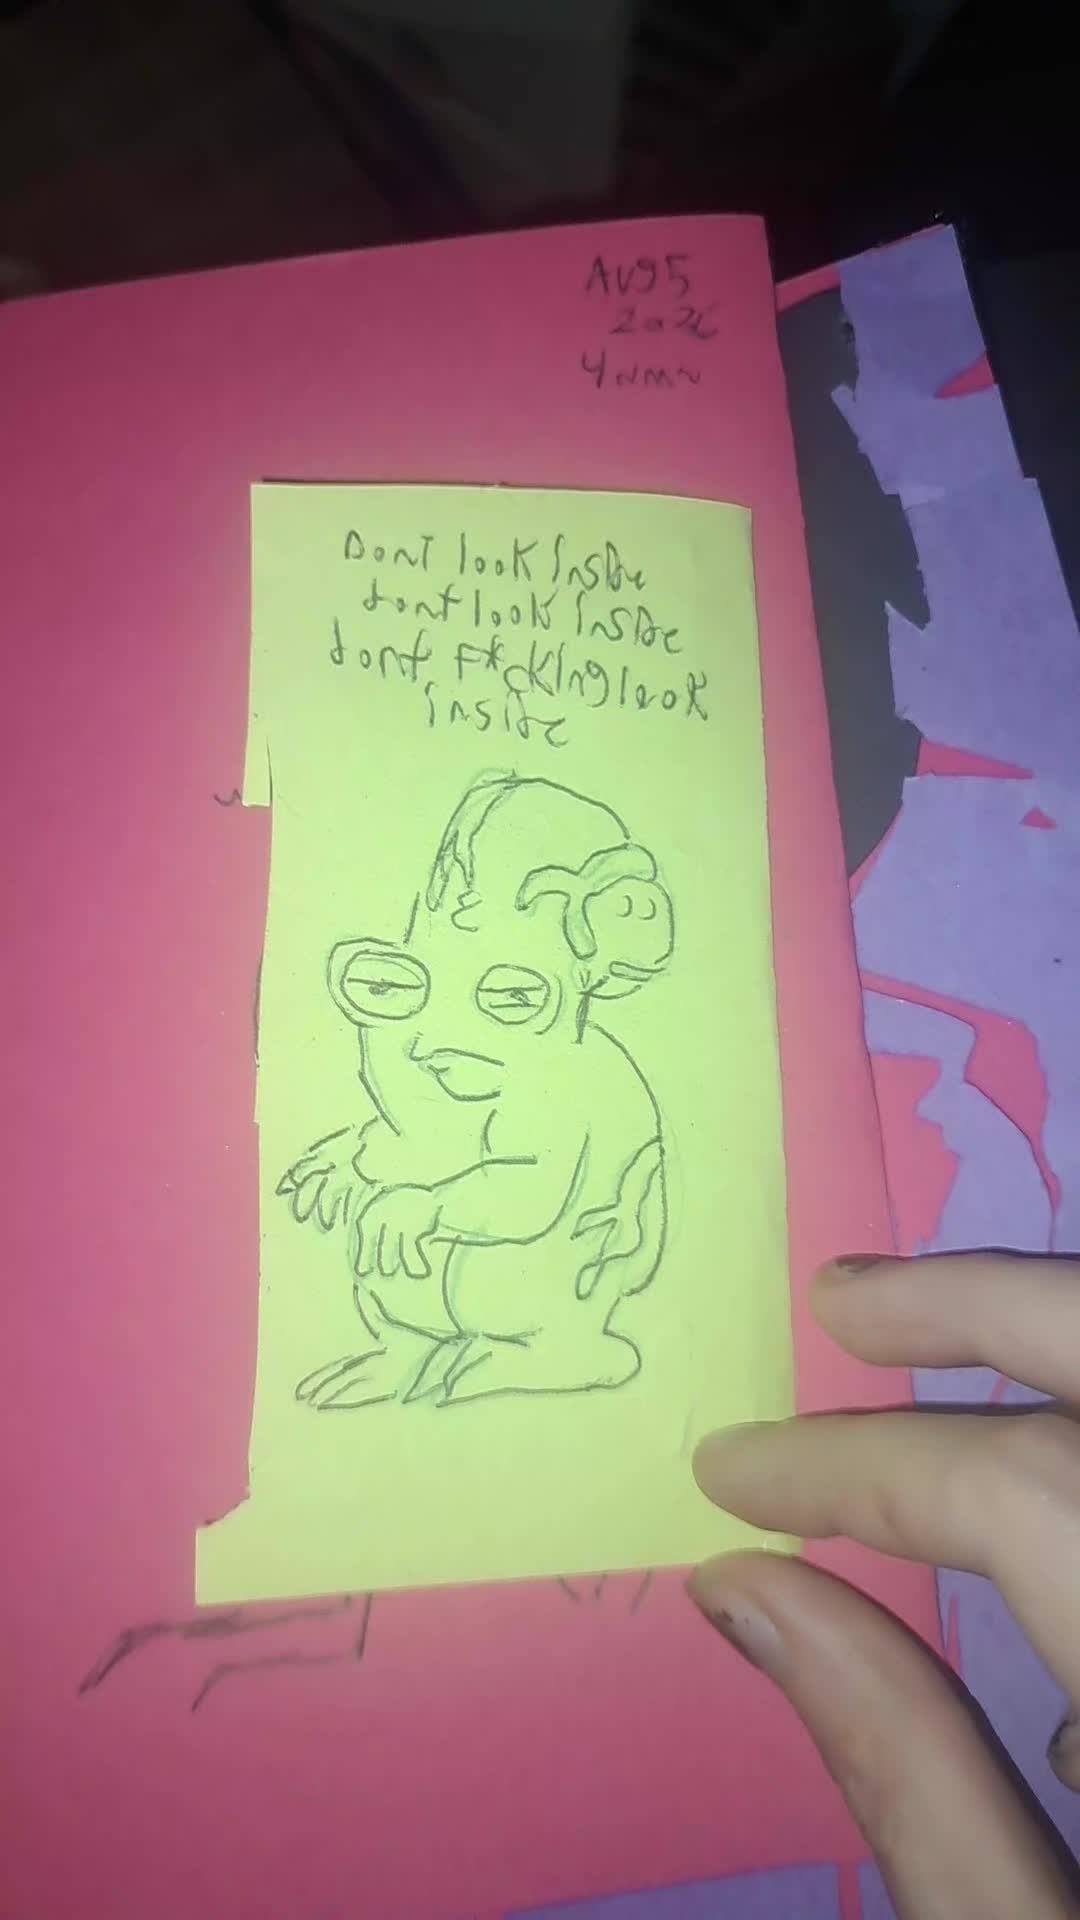 AUG 5
Dont look inside
dont look inside
dont F*cking look
inside